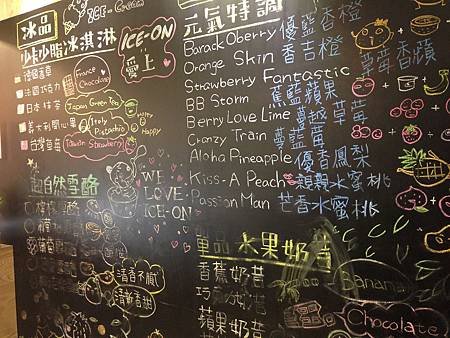 冰品
ICE-CREAM
少卡少脂冰淇淋
ICE-ON
愛上
德國香草
法國巧克力
France Chocolate
日本抹茶
Japan Green Tea
義大利開心果
Italy Pistachio
台灣草莓
Taiwan Strawberry
Happy
Happy
超自然雪酪
WE
LOVE
ICE-ON
清香不膩
清新香甜
元氣特調
Barack Oberry 優藍香橙
Orange Skin 香吉橙
Strawberry Fantastic 莓莓香蘋
BB Storm 蕉藍蘋果
Berry Love Lime 蔓越草莓
Cranzy Train 蔓藍莓
Aloha Pineapple 優香鳳梨
Kiss-A Peach 親親水蜜桃
Passion Man 芒香水蜜桃
單品 水果奶昔
香蕉奶昔
Banana
巧克力奶昔
Chocolate
蘋果奶昔